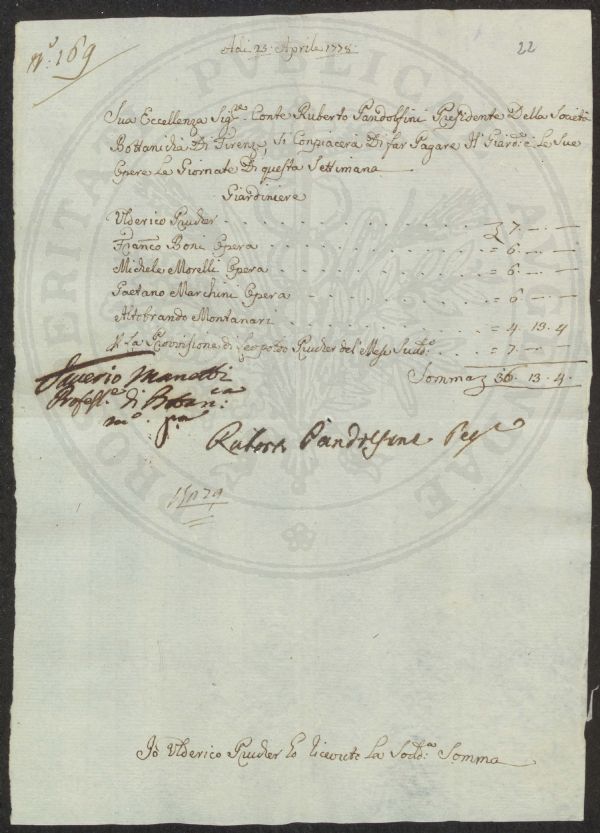 N.º 169
Adi 25: Aprile 1778:
22
Sua Eccellenza Sig.re Conte Ruberto Pandolfini Presidente Della Società
Bottanicha Di Firenze, Si Conpiacerà Di far Pagare Al Giard.e e Le Sue
Opere Le Giornate Di questa Settimana
Giardiniere
Ulderico Pruder . . . . . . . . . = 7. — —
Franc.o Boni Opera . . . . . . . . = 6. — —
Michele Morelli Opera . . . . . . . = 6 — —
Gaetano Marchini Opera . . . . . . . = 6 — —
Altobrando Montanari . . . . . . . = 4. 13. 4
P. La Provvisione di Leopoldo Pruder del Mese Sud.o . . = 7. — —
Somma 36. 13. 4.
Saverio Manetti
Profess.e di Botan.ca
m.o p.a
Rubert Pandolfini
PRO VERITATE PUBLICA
Io Ulderico Pruder ho riceuto La Sodd.a Somma